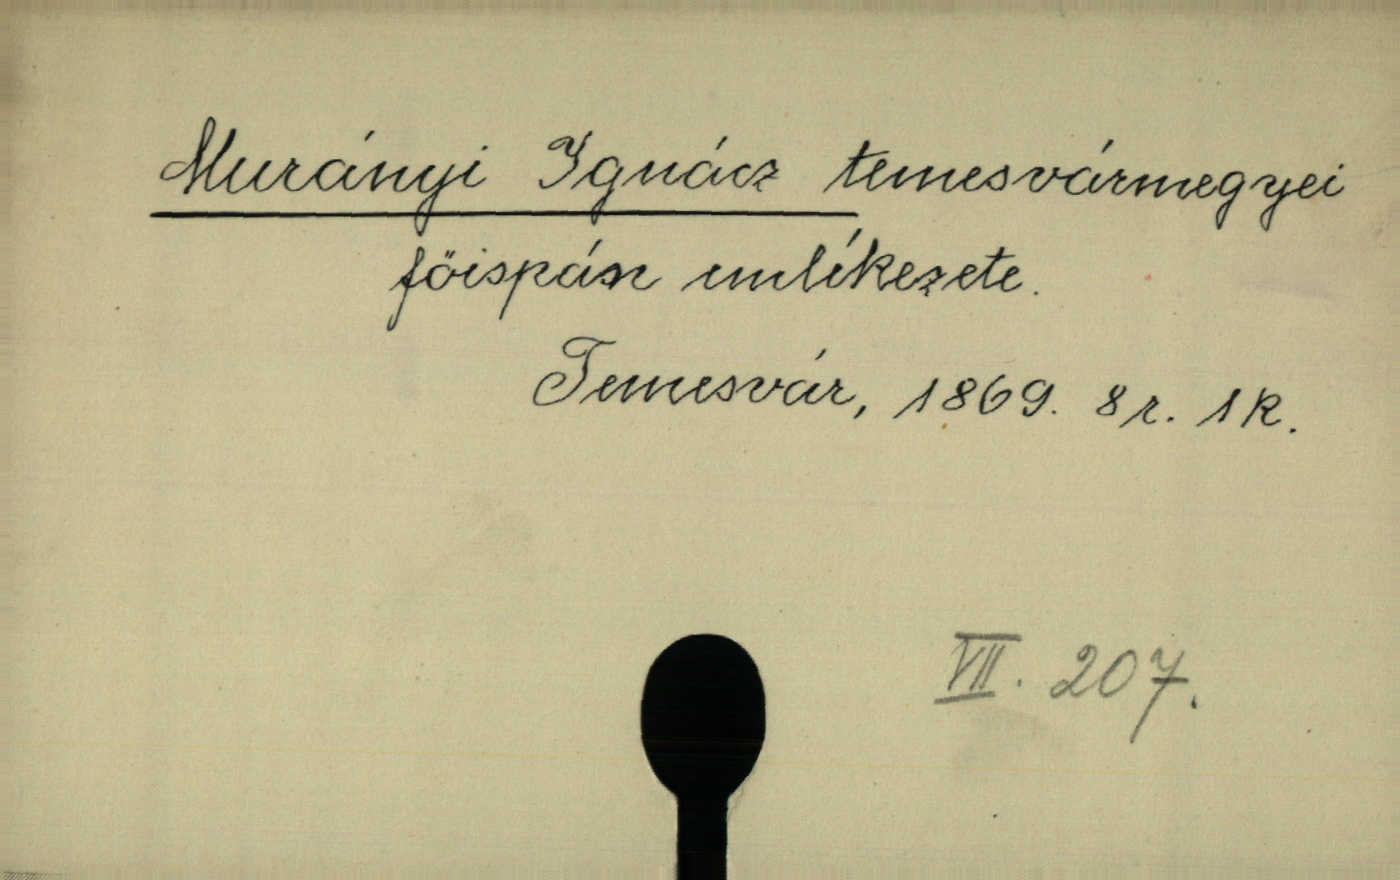 Murányi Ignácz temesvármegyei
főispán emlékezete.
Temesvár, 1869. 8r. 1k.
VII. 207.